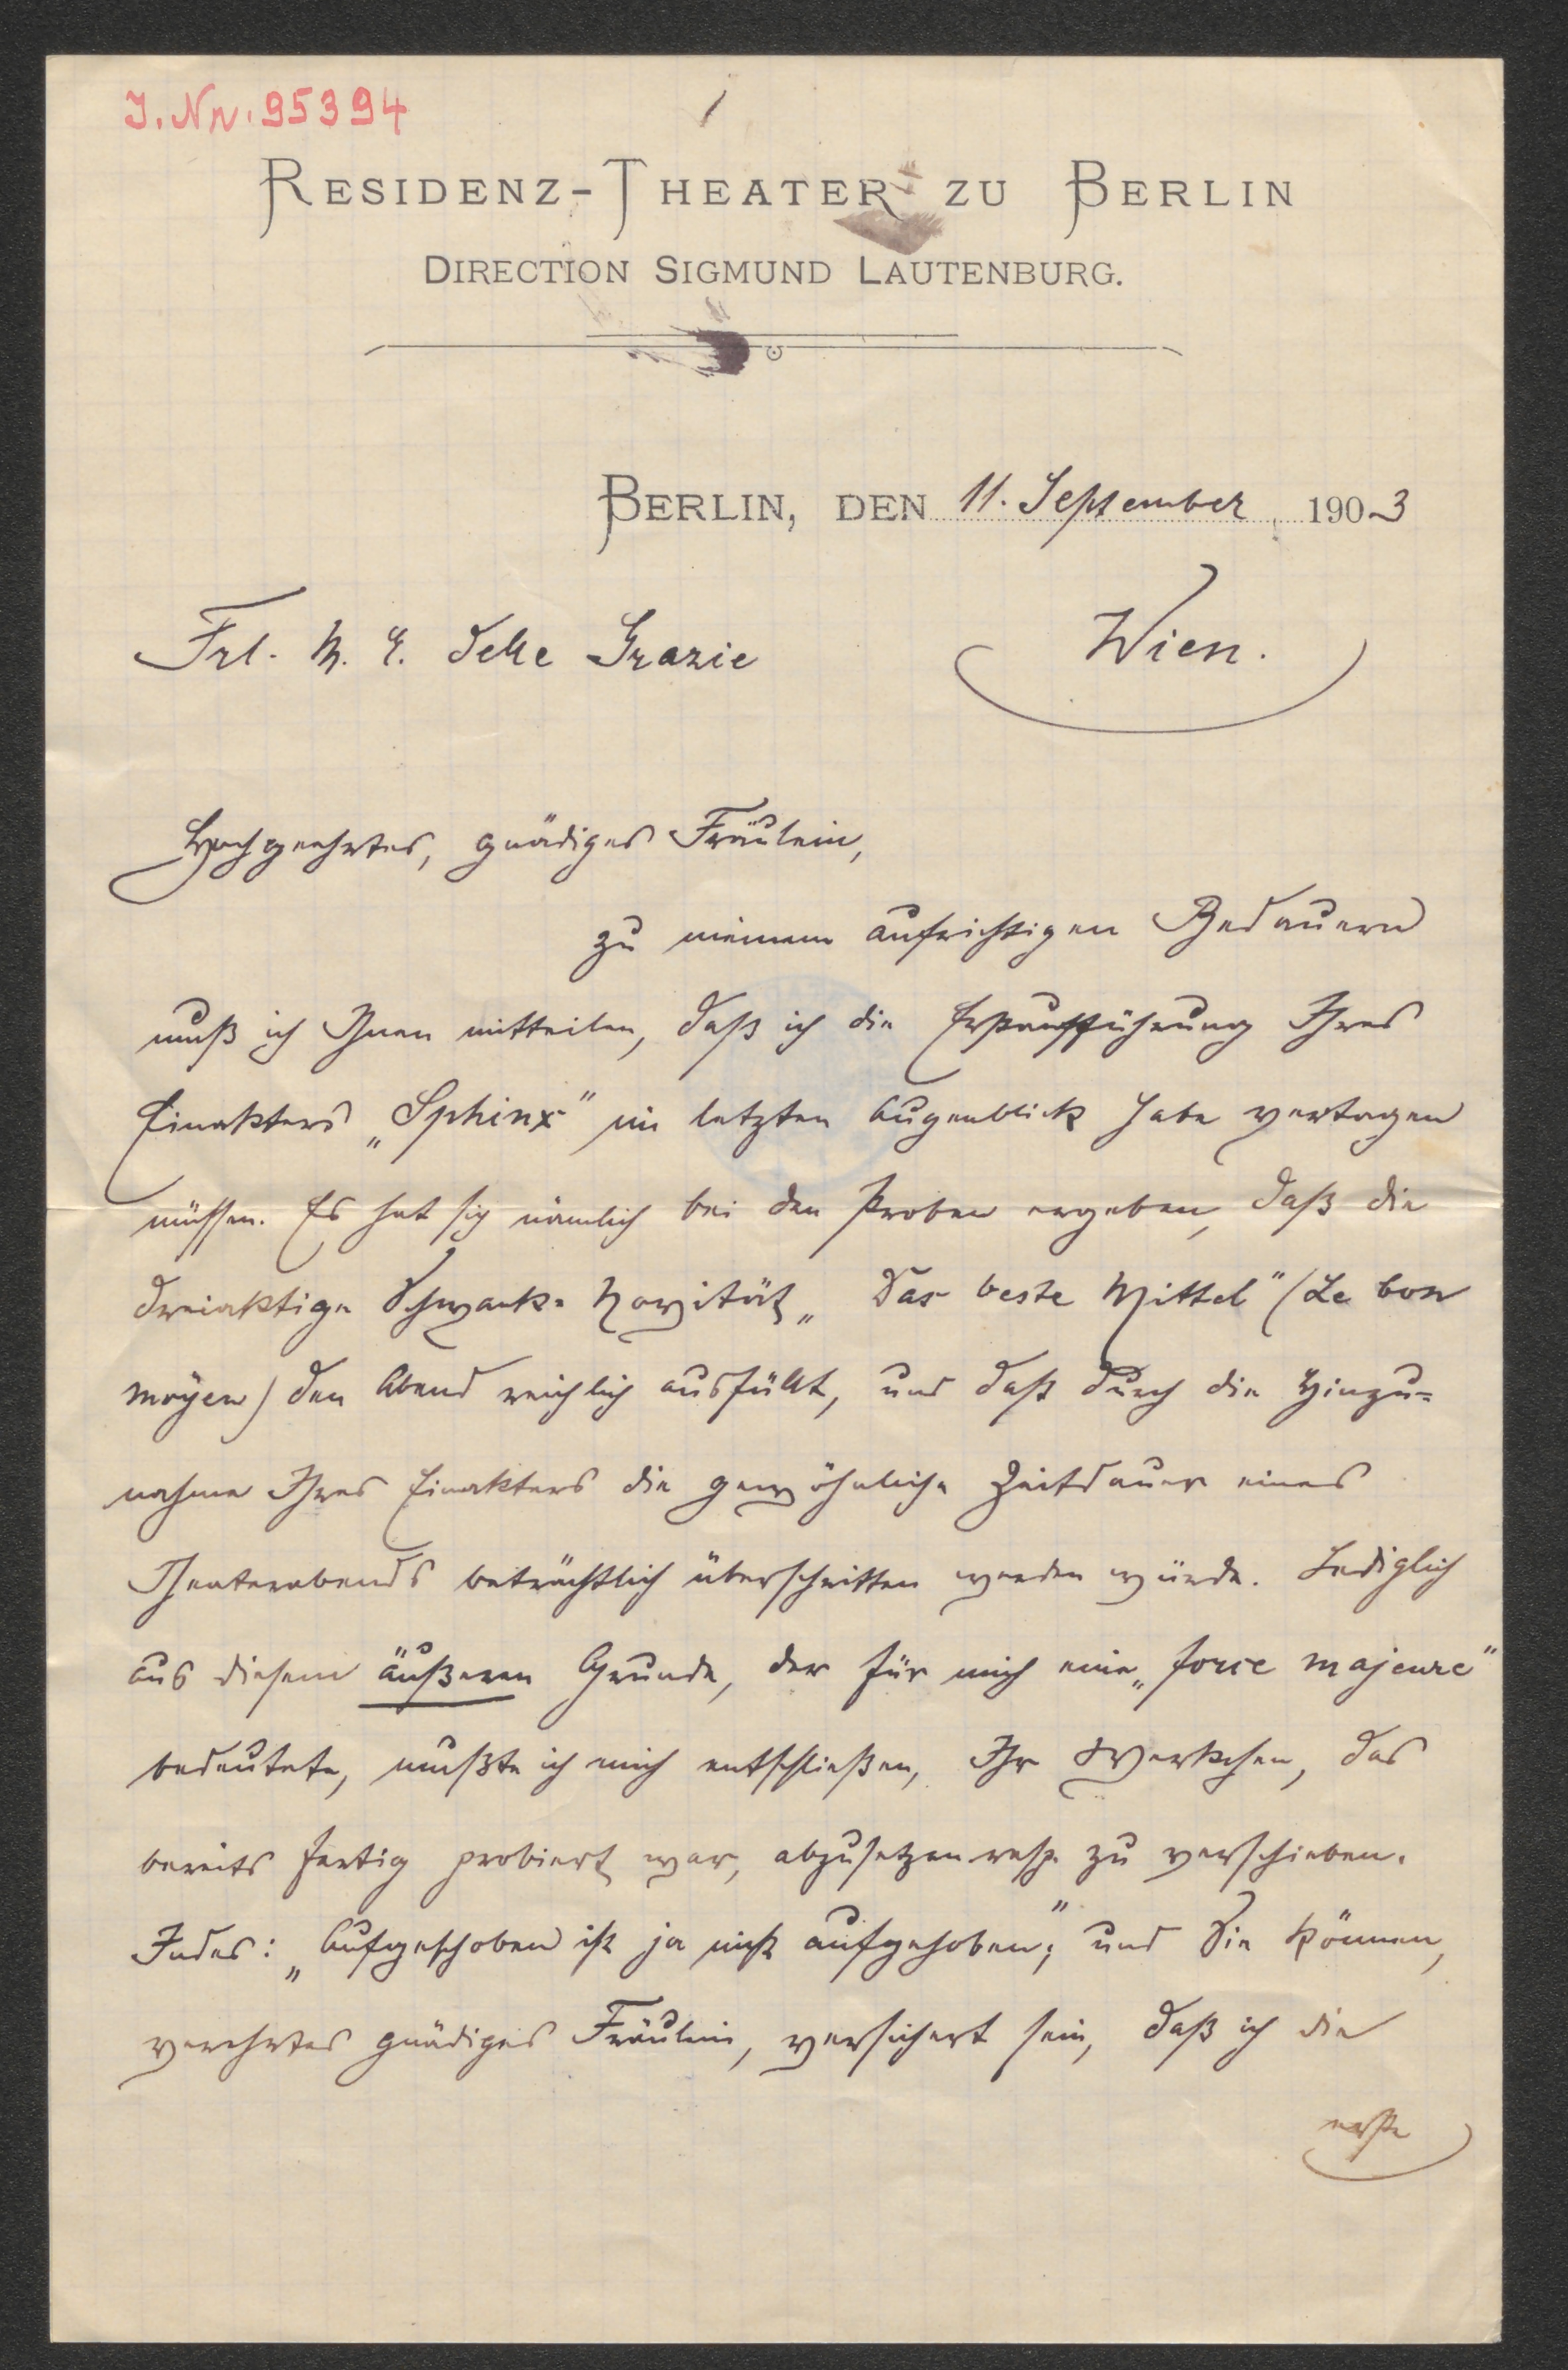 J. Nr. 95394
RESIDENZ-THEATER ZU BERLIN
DIRECTION SIGMUND LAUTENBURG.
BERLIN, DEN 11. September 1903
Frl. M. E. delle Grazie Wien.
Hochgeehrtes, gnädiges Fräulein,
zu meinem aufrichtigen Bedauern
muß ich Ihnen mitteilen, daß ich die Erstaufführung Ihres
Einakters „Sphinx" im letzten Augenblick habe vertagen
müssen. Es hat sich nämlich bei den Proben ergeben, daß die
dreiaktige Schwank-Novität „Das beste Mittel" (Le bon
moÿen) den Abend reichlich ausfüllt, und daß durch die Hinzu=
nahme Ihres Einakters die gewöhnliche Zeitdauer eines
Theaterabends beträchtlich überschritten werden würde. Lediglich
aus diesem äußeren Grunde, der für mich eine „force majeure"
bedeutete, mußte ich mich entschließen, Ihr Werkchen, das
bereits fertig probiert war, abzusetzen resp. zu verschieben.
Indes: „Aufgeschoben ist ja nicht aufgehoben," und Sie können,
verehrtes gnädiges Fräulein, versichert sein, daß ich die
erste